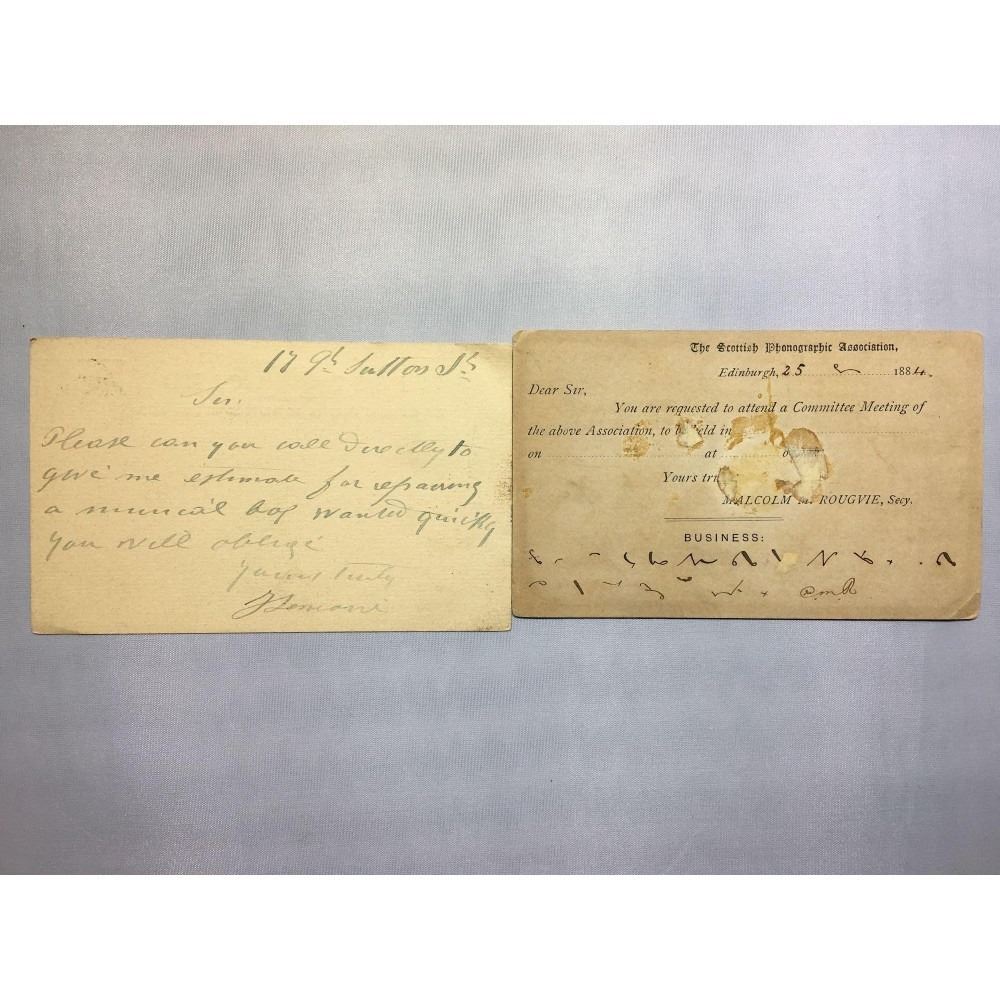 17 Gt Sutton St
Sir.
Please can you call Directly to
give me estimate for repairing
a musical box wanted quickly
you will oblige
Yours truly
The Scottish Phonographic Association,
Edinburgh, 25 1884.
Dear Sir,
You are requested to attend a Committee Meeting of
the above Association, to be held in
on at o
Yours tr
MALCOLM M. ROUGVIE, Secy.
BUSINESS: